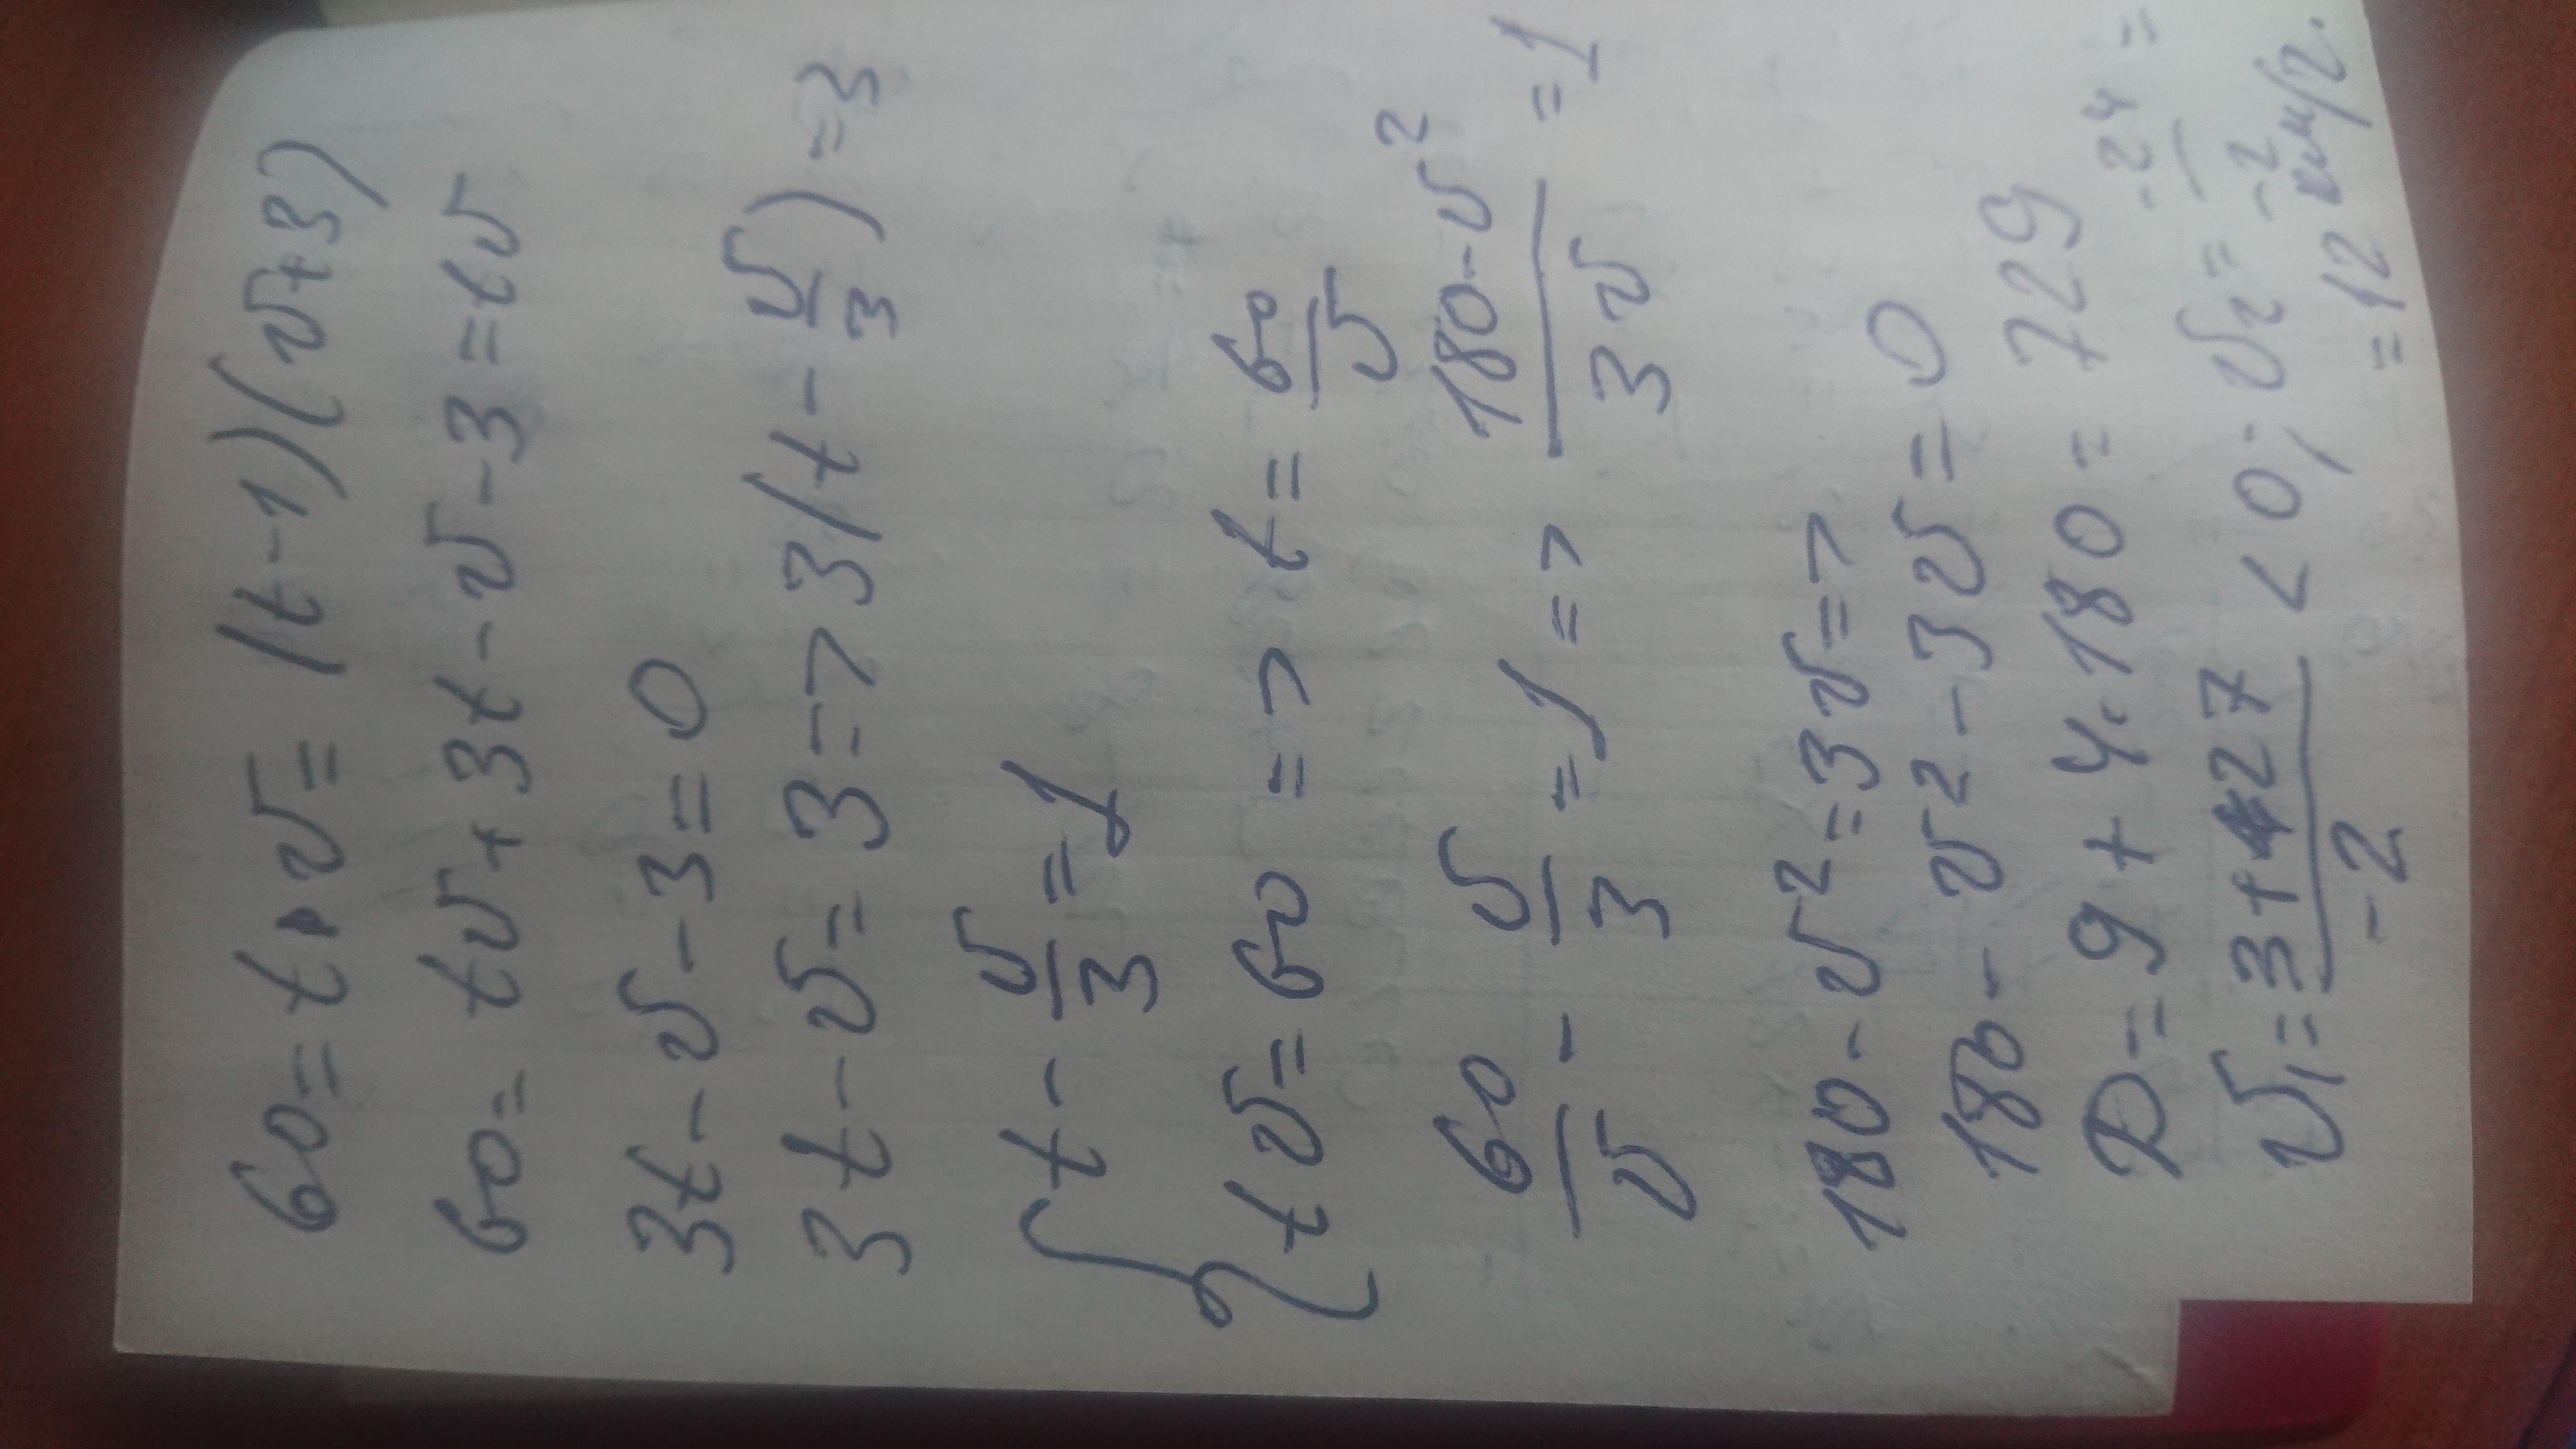 60 = t · v = (t - 1)(v + 3)
60 = tv + 3t - v - 3 = tv
3t - v - 3 = 0
3t - v = 3 => 3(t - v/3) = 3
{ t - v/3 = 1
tv = 60 => t = 60/v
60/v - v/3 = 1 => (180 - v²)/(3v) = 1
180 - v² = 3v =>
180 - v² - 3v = 0
D = 9 + 4 · 180 = 729
v₁ = (3 + 27)/-2 < 0; v₂ = -24/-2 =
= 12 км/г.